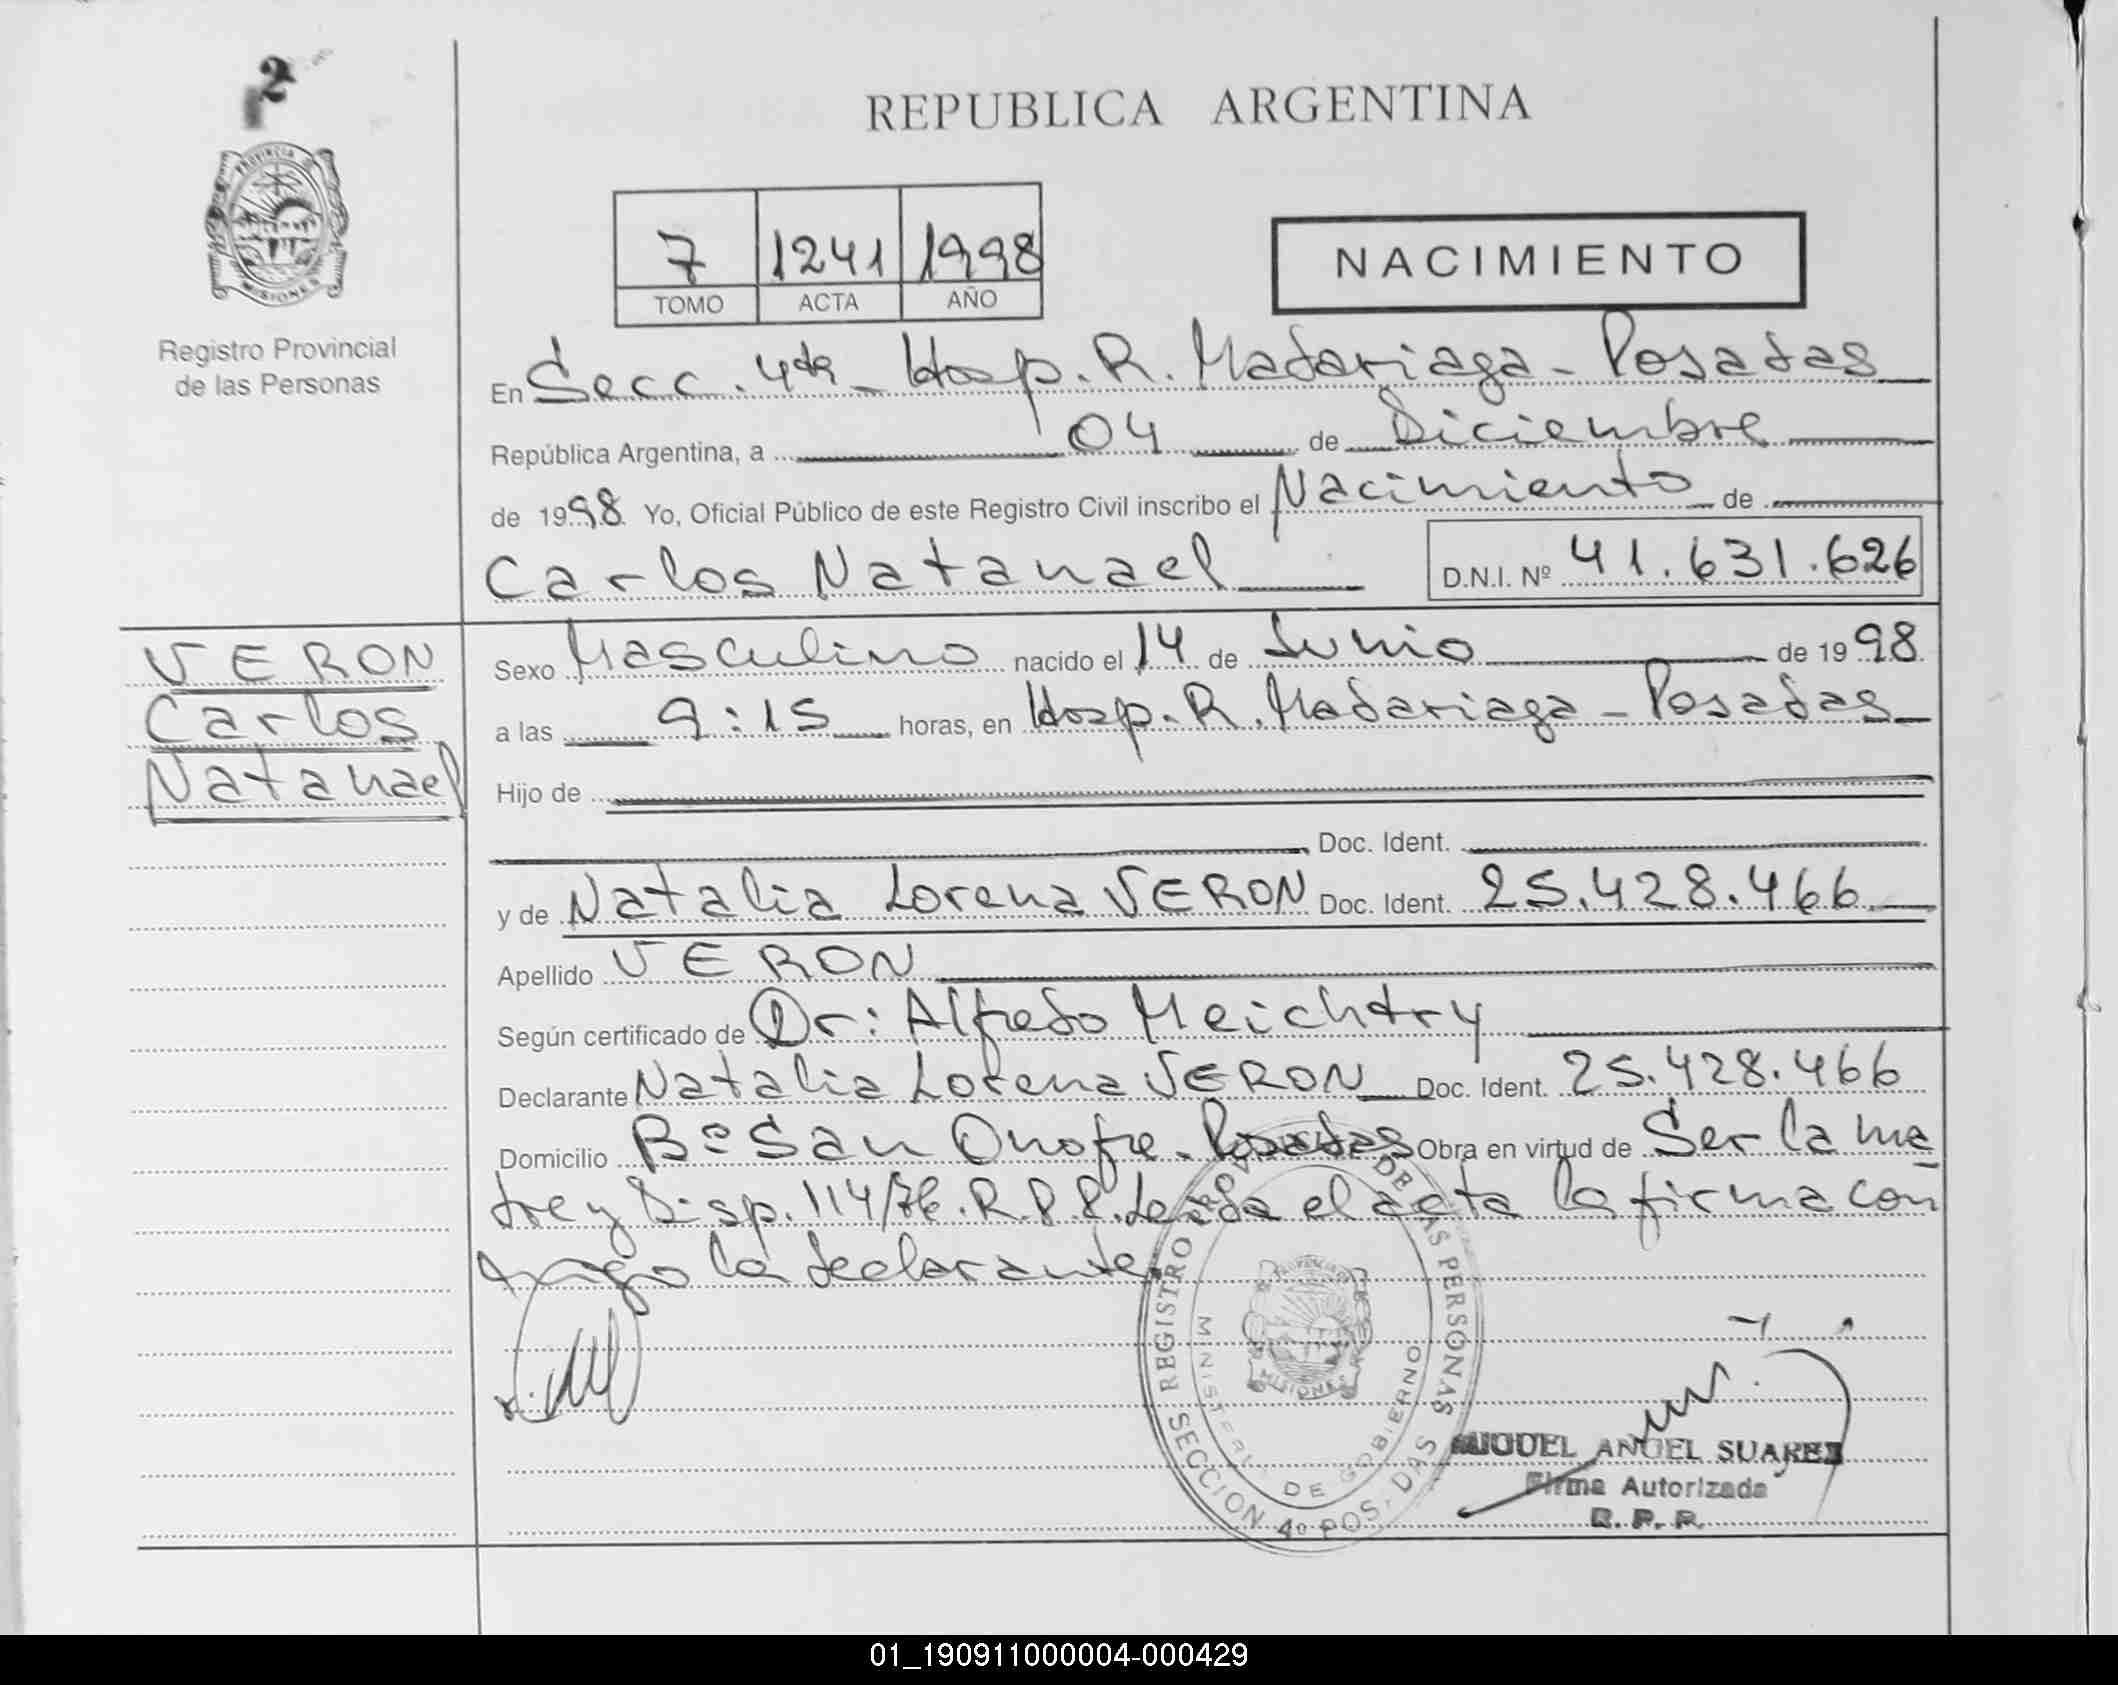 2
PROVINCIA DE
MISIONES
Registro Provincial
de las Personas
REPUBLICA ARGENTINA
7 1241 1998
TOMO ACTA AÑO
NACIMIENTO
En Secc. 4ta - Hosp. R. Madariaga - Posadas
República Argentina, a 04 de Diciembre
de 1998 Yo, Oficial Público de este Registro Civil inscribo el Nacimiento de
Carlos Natanael D.N.I. Nº 41.631.626
VERON
Carlos
Natanael
Sexo Masculino nacido el 14 de Junio de 1998
a las 9:15 horas, en Hosp. R. Madariaga - Posadas
Hijo de
Doc. Ident.
y de Natalia Lorena VERON Doc. Ident. 25.428.466
Apellido VERON
Según certificado de Dr: Alfredo Meichtry
Declarante Natalia Lorena VERON Doc. Ident. 25.428.466
Domicilio Bº San Onofre - Posadas Obra en virtud de Ser la ma
dre y Disp. 114/76. R.P.P. Leida el acta la firma con
migo la declarante
REGISTRO PROV. DE LAS PERSONAS
MINISTERIO DE GOBIERNO
MISIONES
SECCION 4º POSADAS
MIGUEL ANGEL SUAREZ
Firma Autorizada
R. P. P.
01_190911000004-000429